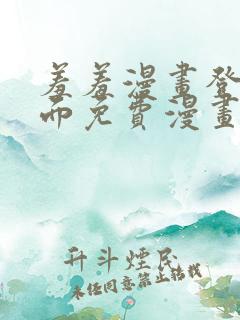 羞羞漫畫登
而免費漫畫
升斗煙民
未经同意禁止转载